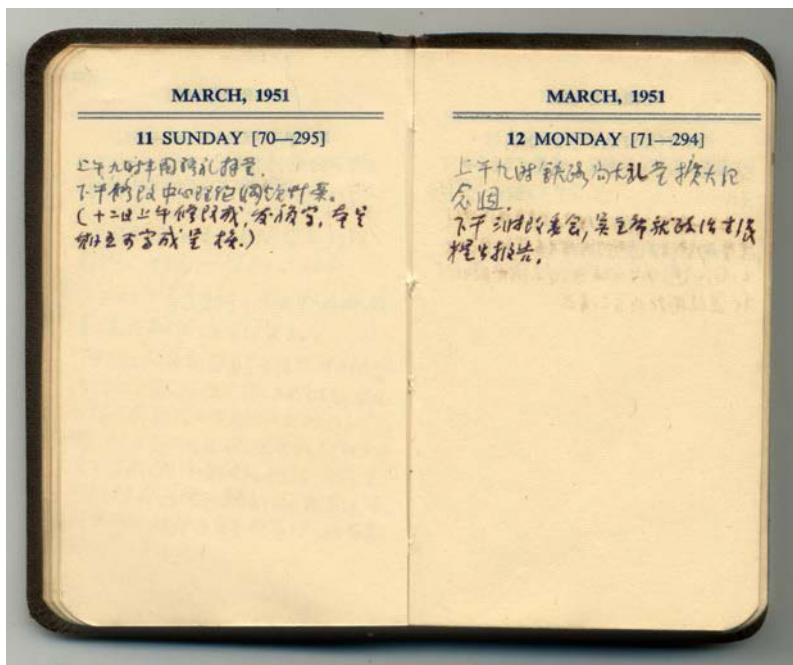 MARCH, 1951
11 SUNDAY [70—295]
上午九时半国防礼拜堂.
下午修改中心理论纲领草案。
(十二日上午修改成,
MARCH, 1951
12 MONDAY [71—294]
上午九时铁路局大礼堂扩大纪
念週.
下午三时改委会,吴主席就政治
提出报告.